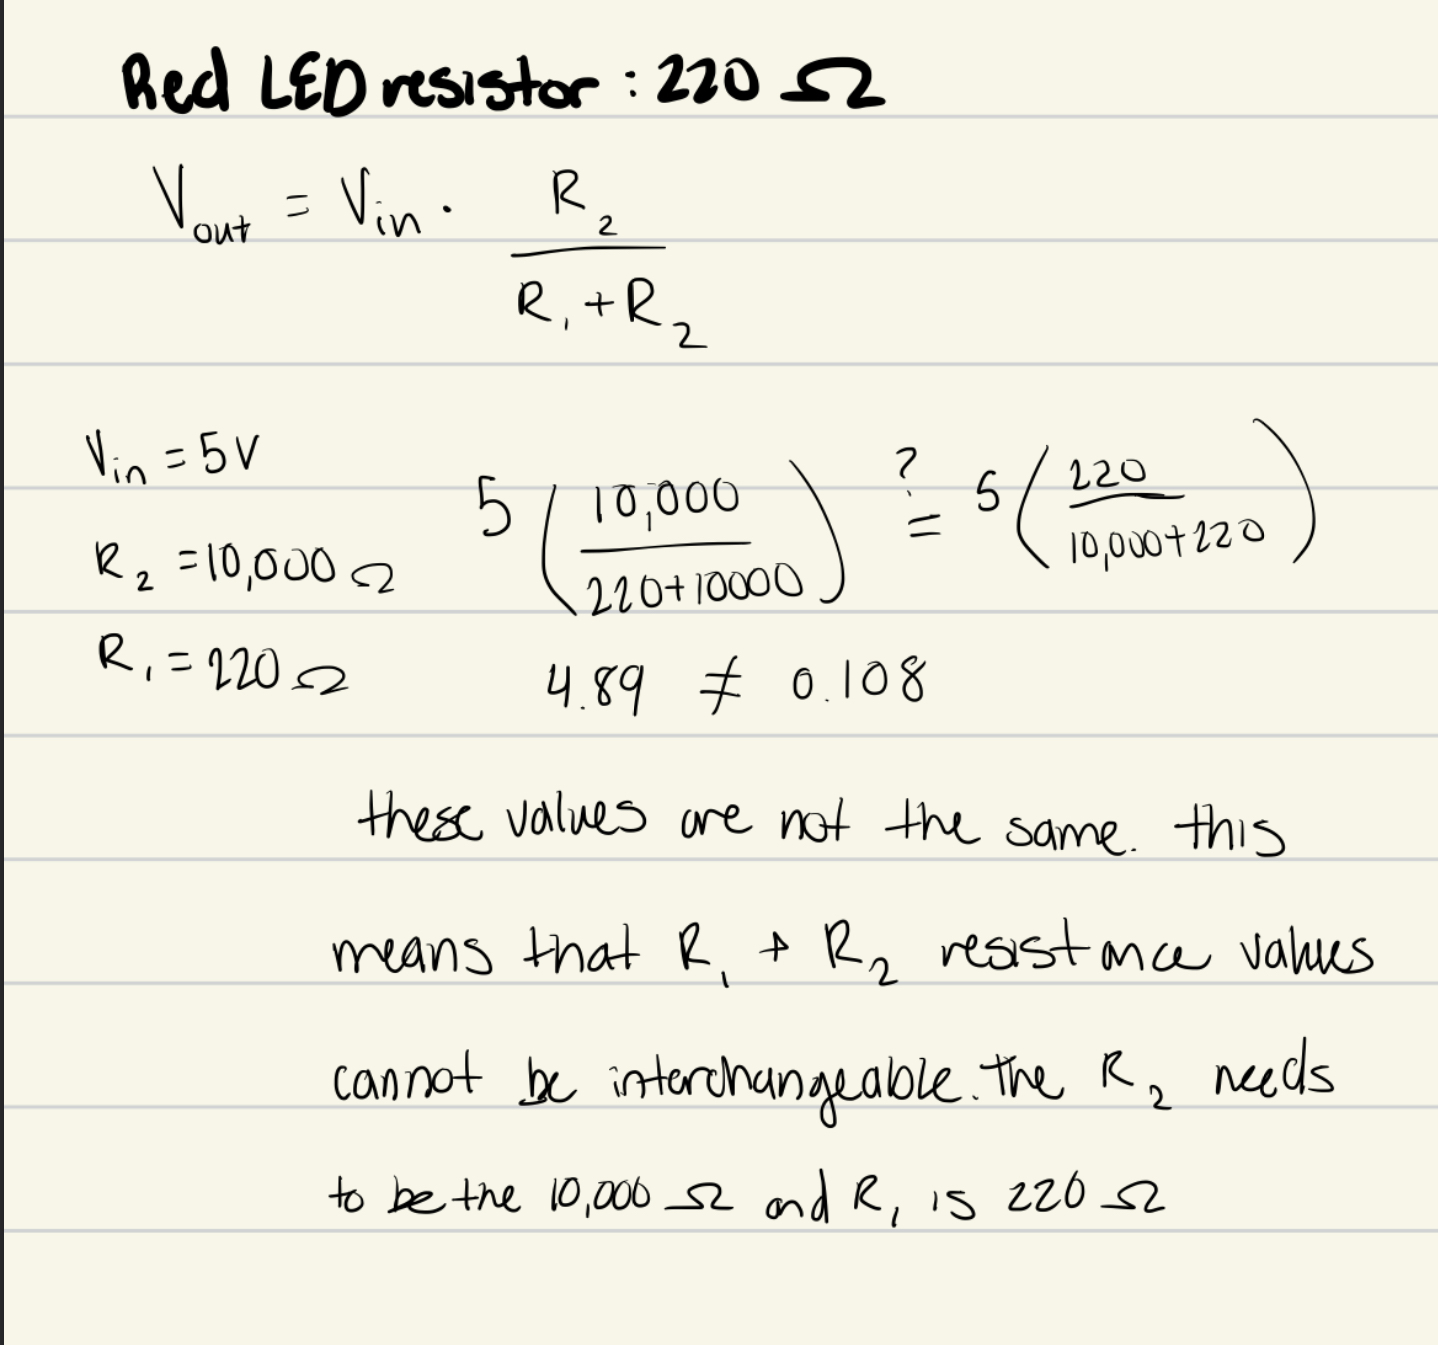 Red LED resistor : 220 Ω
V_out = V_in · R_2 / (R_1 + R_2)
V_in = 5V
R_2 = 10,000 Ω
R_1 = 220 Ω
5 (10,000 / (220+10000)) ?= 5 (220 / (10,000+220))
4.89 ≠ 0.108
these values are not the same. this
means that R_1 + R_2 resistance values
cannot be interchangeable. The R_2 needs
to be the 10,000 Ω and R_1 is 220 Ω